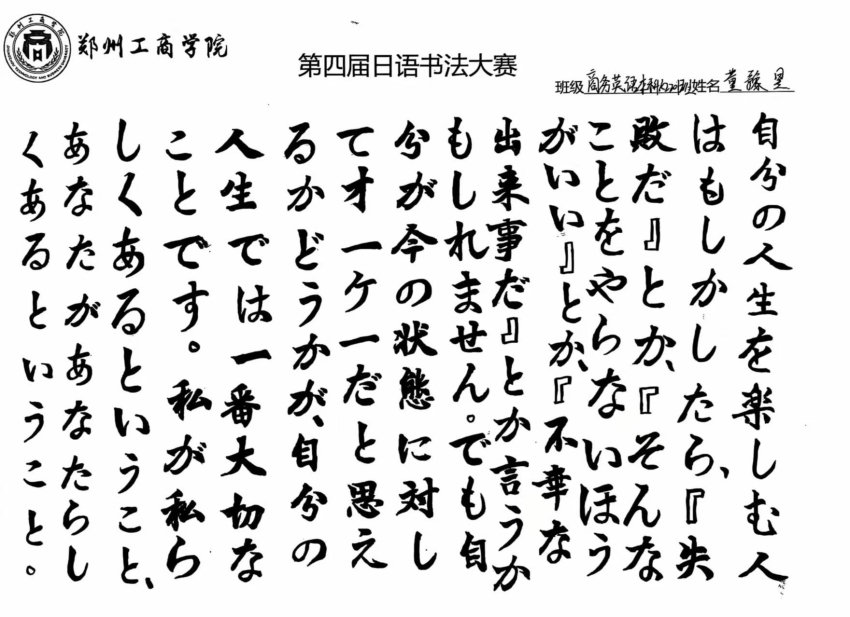 郑州工商学院
第四届日语书法大赛
班级 商务英语本科 姓名 董
自分の人生を楽しむ人
はもしかしたら、『失
敗だ』とか、『そんな
ことをやらないほう
がいい』とか、『不幸な
出来事だ』とか言うか
もしれません。でも自
分が今の状態に対し
てオーケーだと思え
るかどうかが、自分の
人生では一番大切な
ことです。私が私ら
しくあるということ、
あなたがあなたらし
くあるということ。